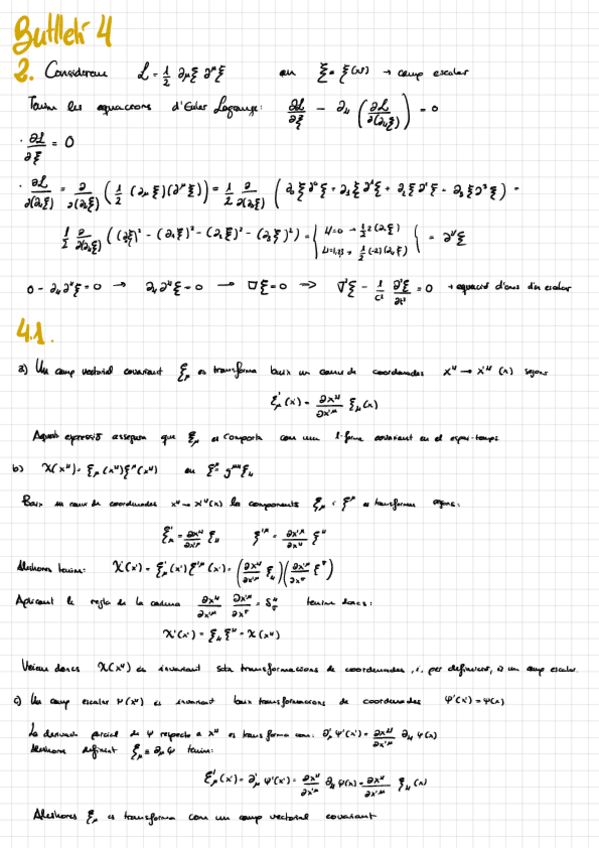 Butlletí 4
2. Considerem L = 1/2 ∂μξ ∂^μξ on ξ = ξ(x^ν) → camp escalar
Tenim les equacions d'Euler Lagrange: ∂L/∂ξ − ∂ν (∂L/∂(∂νξ)) = 0
· ∂L/∂ξ = 0
· ∂L/∂(∂νξ) = ∂/∂(∂νξ) (1/2 (∂μξ)(∂^μξ)) = 1/2 ∂/∂(∂νξ) (∂₀ξ∂⁰ξ + ∂₁ξ∂¹ξ + ∂₂ξ∂²ξ + ∂₃ξ∂³ξ) =
1/2 ∂/∂(∂νξ) ((∂₀ξ)² − (∂₁ξ)² − (∂₂ξ)² − (∂₃ξ)²) = { ν=0 → 1/2 2(∂νξ)
ν=1,2,3 → 1/2 (−2)(∂νξ) } = ∂^νξ
0 − ∂ν∂^νξ = 0 → ∂ν∂^νξ = 0 → □ξ = 0 => ∇²ξ − 1/c² ∂²ξ/∂t² = 0 → equació d'ones escalar
4.1.
a) Un camp vectorial covariant ξμ es transforma baix un canvi de coordenades x^ν → x'^ν (x) segons
ξ'μ(x') = ∂x^ν/∂x'^μ ξν(x)
Aquesta expressió assegura que ξμ es comporta com una 1-forma covariant en el espai-temps
b) χ(x^ν) = ξμ(x^ν)ξ^μ(x^ν) on ξ^μ = g^μν ξν
Baix un canvi de coordenades x^ν → x'^ν(x) les components ξμ i ξ^μ es transformen segons:
ξ'μ = ∂x^ν/∂x'^μ ξν ξ'^μ = ∂x'^μ/∂x^ν ξ^ν
Aleshores tenim: χ'(x') = ξ'μ(x')ξ'^μ(x') = (∂x^ν/∂x'^μ ξν)(∂x'^μ/∂x^σ ξ^σ)
Aplicant la regla de la cadena ∂x^ν/∂x'^μ ∂x'^μ/∂x^σ = δ^ν_σ tenim doncs:
χ'(x') = ξν ξ^ν = χ(x^ν)
Veiem doncs χ(x^ν) es invariant sota transformacions de coordenades, i, per definició, és un camp escalar.
c) Un camp escalar ψ(x^ν) es invariant baix transformacions de coordenades ψ'(x') = ψ(x)
La derivada parcial de ψ respecte a x^ν es transforma com: ∂'μ ψ'(x') = ∂x^ν/∂x'^μ ∂ν ψ(x)
Aleshores definint ξμ ≡ ∂μψ tenim:
ξ'μ(x') = ∂'μ ψ'(x') = ∂x^ν/∂x'^μ ∂ν ψ(x) = ∂x^ν/∂x'^μ ξν(x)
Aleshores ξμ es transforma com un camp vectorial covariant